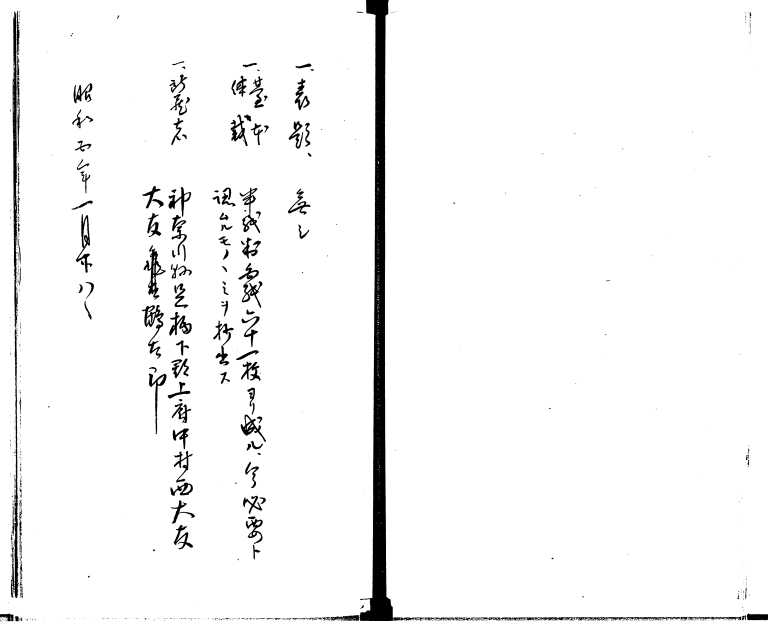 一、表題、 無シ
一、臺本
体裁 半紙判和紙六十一枚ヨリ成ル、今必要ト
認ムルモノヽミヲ抄出ス
一、所蔵者 神奈川縣足柄下郡上府中村西大友
大友亀太郎
昭和五年一月廿八日